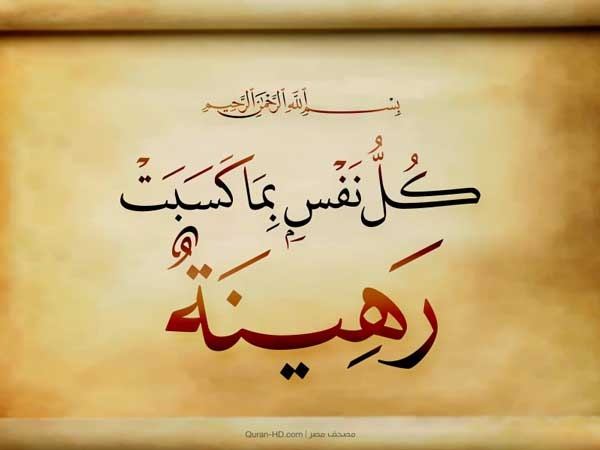 بِسْمِ ٱللَّهِ ٱلرَّحْمَٰنِ ٱلرَّحِيمِ
كُلُّ نَفْسٍۭ بِمَا كَسَبَتْ
رَهِينَةٌ
Quran-HD.com | مصحف مصر